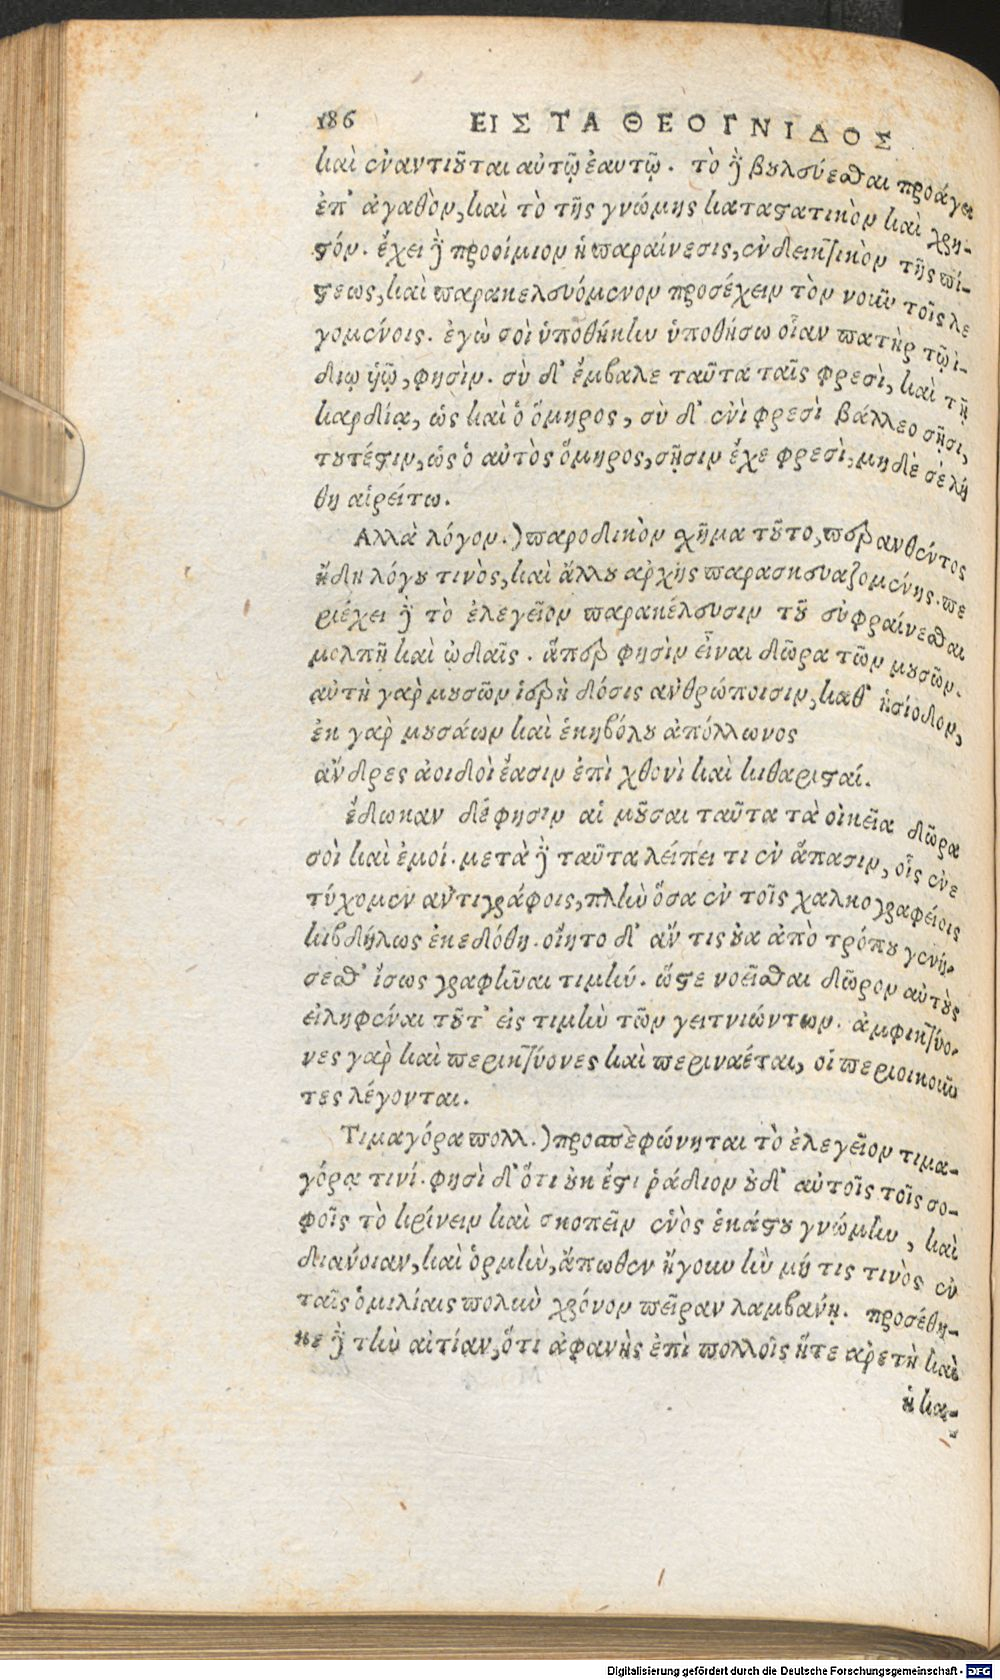 186 ΕΙΣ ΤΑ ΘΕΟΓΝΙΔΟΣ
καὶ ἐναντιοῦται αὐτῷ ἑαυτῷ. τὸ δὲ βουλεύεσθαι προάγει
ἐπ' ἀγαθὸν, καὶ τὸ τῆς γνώμης καταστατικὸν καὶ χρη-
στόν. ἔχει δὲ προοίμιον ἡ παραίνεσις, ἐνδεικτικὸν τῆς πί-
στεως, καὶ παρακελευόμενον προσέχειν τὸν νοῦν τοῖς λε
γομένοις. ἐγὼ σοὶ ὑποθήκην ὑποθήσω οἵαν πατὴρ τῷ ἰ-
δίῳ ὑῷ, φησὶν. σὺ δ' ἔμβαλε ταῦτα ταῖς φρεσὶ, καὶ τῇ
καρδίᾳ, ὡς καὶ ὁ ὅμηρος, σὺ δ' ἐνὶ φρεσὶ βάλλεο σῇσι,
τουτέστιν, ὡς ὁ αὐτὸς ὅμηρος, σῇσιν ἔχε φρεσὶ, μηδὲ σὲ λή
θη αἱρείτω.
Αλλὰ λόγον.) παροδικὸν σχῆμα τοῦτο, περανθέντος
ἤδη λόγου τινὸς, καὶ ἄλλου αρχῆς παρασκευαζομένης. πε
ριέχει δὲ τὸ ἐλεγεῖον παρακέλευσιν τοῦ εὐφραίνεσθαι
μολπῇ καὶ ᾠδαῖς. ἅπερ φησὶν εἶναι δῶρα τῶν μουσῶν.
αὕτη γὰρ μουσῶν ἱερὴ δόσις ανθρώποισιν, καθ' ἡσίοδον,
ἐκ γαρ μουσάων καὶ ἑκηβόλου ἀπόλλωνος
ἄνδρες ἀοιδοὶ ἔασιν ἐπὶ χθονὶ καὶ κιθαρισταί.
ἔδωκαν δέ φησιν αἱ μοῦσαι ταῦτα τὰ οἰκεῖα δῶρα
σοὶ καὶ ἐμοί. μετὰ δὲ ταῦτα λείπει τι ἐν ἅπασιν, οἷς ἐνε
τύχομεν αντιγράφοις, πλὴν ὅσα ἐν τοῖς χαλκογραφείοις
κιβδήλως ἐκεδόθη. οἴητο δ' ἄν τις οὐα ἀπὸ τρόπου γενή-
σεσθ' ἴσως γραφῆναι τιμήν. ὥστε νοεῖσθαι δῶρον αὐτοὺς
εἰληφέναι τοῦτ' εἰς τιμὴν τῶν γειτνιώντων. ἀμφικτύο-
νες γαρ καὶ περικτύονες καὶ περιναέται, οἱ περιοικοῦν
τες λέγονται.
Τιμαγόρα πολλ.) προσεφώνηται τὸ ἐλεγεῖον τιμα-
γόρᾳ τινί. φησὶ δ' ὅτι οὐκ ἔστι ῥάδιον οὐδ' αὐτοῖς τοῖς σο-
φοῖς τὸ κρίνειν καὶ σκοπεῖν ἑνὸς ἑκάστου γνώμην, καὶ
διανοιαν, καὶ ὁρμὴν, ἄπωθεν ἤγουν ἢν μή τις τινὸς ἐν
ταῖς ὁμιλίαις πολὺν χρόνον πεῖραν λαμβανῃ. προσέθη-
κε δὲ τὴν αἰτίαν, ὅτι ἀφανὴς ἐπὶ πολλοῖς ἥτε αρετὴ καὶ
ἡ κα-
Digitalisierung gefördert durch die Deutsche Forschungsgemeinschaft - DFG